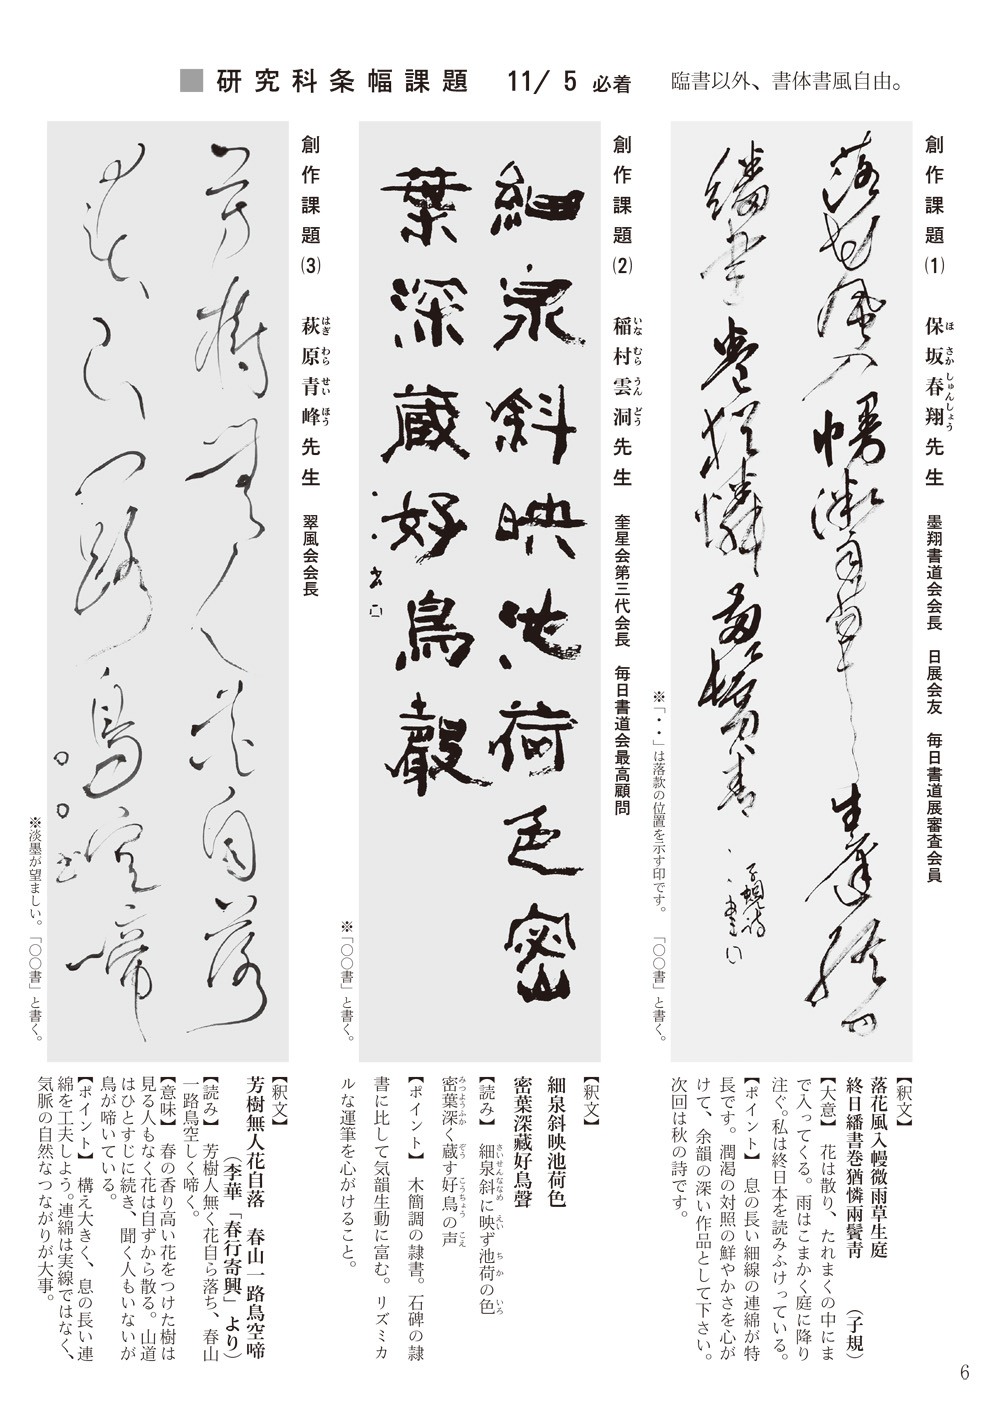 ■研究科条幅課題　11/5必着　臨書以外、書体書風自由。
創作課題(1)　保坂春翔先生　墨翔書道会会長　日展会友　毎日書道展審査会員
ほ さか しゅんしょう
落花風入幔微雨草生庭終日
繙書巻猶憐兩鬢青
子規詩
書
※「・・」は落款の位置を示す印です。　「〇〇書」と書く。
【釈文】
落花風入幔微雨草生庭
終日繙書巻猶憐兩鬢靑　（子規）
【大意】　花は散り、たれまくの中にま
で入ってくる。雨はこまかく庭に降り
注ぐ。私は終日本を読みふけっている。
【ポイント】　息の長い細線の連綿が特
長です。潤渇の対照の鮮やかさを心が
けて、余韻の深い作品として下さい。
次回は秋の詩です。
創作課題(2)　稲村雲洞先生　奎星会第三代会長　毎日書道会最高顧問
いな むら うん どう
細泉斜映池荷色密
葉深蔵好鳥聲
書
※「〇〇書」と書く。
【釈文】
細泉斜映池荷色
密葉深藏好鳥聲
【読み】　細泉斜に映ず池荷の色
さいせんななめ えい ち か いろ
密葉深く蔵す好鳥の声
みつようふか ぞう こうちょう こえ
【ポイント】　木簡調の隷書。石碑の隷
書に比して気韻生動に富む。リズミカ
ルな運筆を心がけること。
創作課題(3)　萩原青峰先生　翠風会会長
はぎ わら せい ほう
芳樹無人花自落
春山一路鳥空啼
〇〇書
※淡墨が望ましい。「〇〇書」と書く。
【釈文】
芳樹無人花自落　春山一路鳥空啼
（李華「春行寄興」より）
【読み】　芳樹人無く花自ら落ち、春山
一路鳥空しく啼く。
【意味】　春の香り高い花をつけた樹は
見る人もなく花は自ずから散る。山道
はひとすじに続き、聞く人もいないが
鳥が啼いている。
【ポイント】　構え大きく、息の長い連
綿を工夫しよう。連綿は実線ではなく、
気脈の自然なつながりが大事。
6